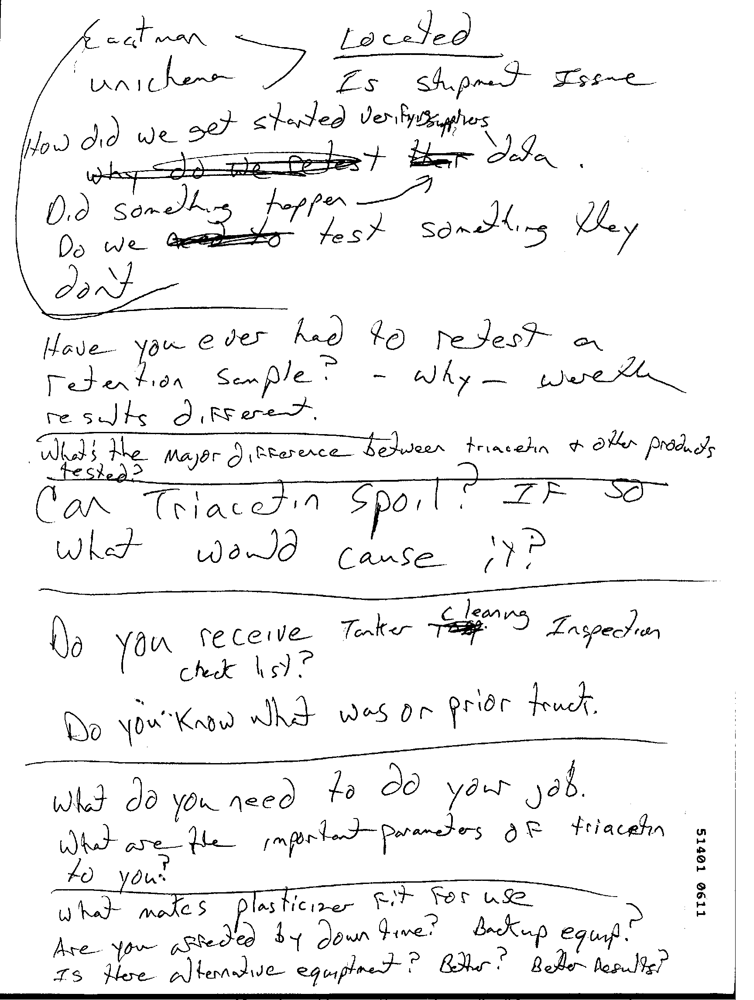 Eastman
unichema
Located
Is shipment Issue
How did we get started verifying suppliers
why do we retest their data.
Did something happen
Do we need to test something they
don't
Have you ever had to retest a
retention sample? - why - were the
results different.
What's the major difference between triacetin & other products
tested?
Can Triacetin spoil? IF so
what would cause it?
Do you receive Tanker Cleaning Inspection
check list?
Do you know what was on prior truck.
What do you need to do your job.
What are the important parameters of triacetin
to you?
what makes plasticizer fit for use
Are you affected by down time? Backup equip?
Is there alternative equiptment? Better? Better Results?
51401 0611